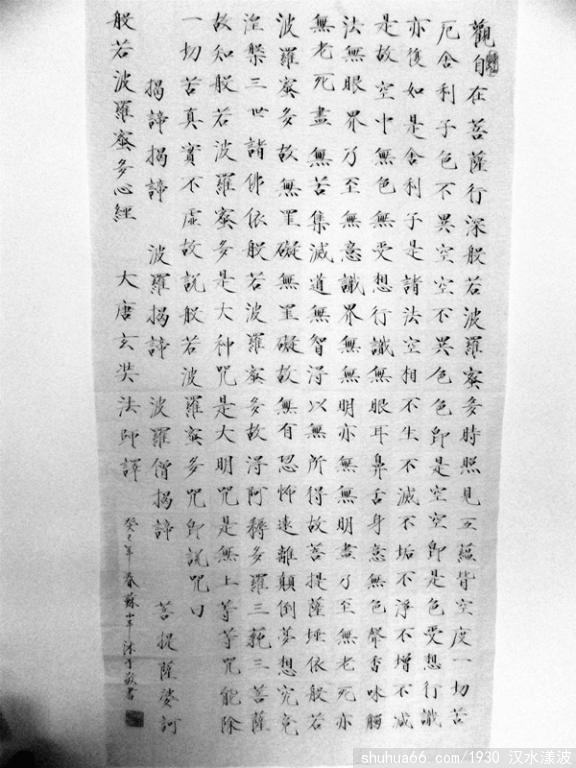 觀自在菩薩行深般若波羅蜜多時照見五蘊皆空度一切苦
厄舍利子色不異空空不異色色即是空空即是色受想行識
亦復如是舍利子是諸法空相不生不滅不垢不淨不增不減
是故空中無色無受想行識無眼耳鼻舌身意無色聲香味觸
法無眼界乃至無意識界無無明亦無無明盡乃至無老死亦
無老死盡無苦集滅道無智淂以無所得故菩提薩埵依般若
波羅蜜多故無罣礙無罣礙故無有恐怖遠離顛倒夢想究竟
涅槃三世諸佛依般若波羅蜜多故淂阿耨多羅三藐三菩薩
故知般若波羅蜜多是大神咒是大明咒是無上等等咒能除
一切苦真實不虛故說般若波羅蜜多咒即說咒曰
揭諦揭諦 波羅揭諦 波羅僧揭諦 菩提薩婆訶
般若波羅蜜多心經 大唐玄奘法師譯
癸巳年春蘇沐手敬書
shuhua66.com/1930 汉水漾波